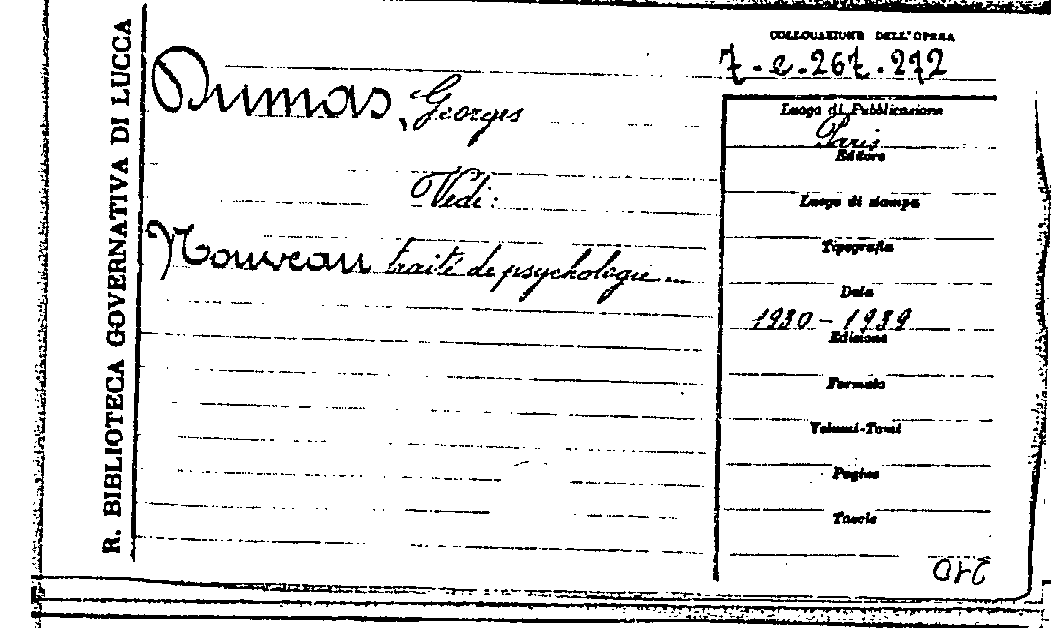 R. BIBLIOTECA GOVERNATIVA DI LUCCA
COLLOCAZIONE DELL'OPERA
7.e.267.272
Dumas, Georges
Vedi:
Nouveau traité de psychologie...
Luogo di Pubblicazione
Paris
Editore
Luogo di stampa
Tipografia
Data
1930-1939
Edizione
Formato
Volumi-Tomi
Pagine
Tavole
210